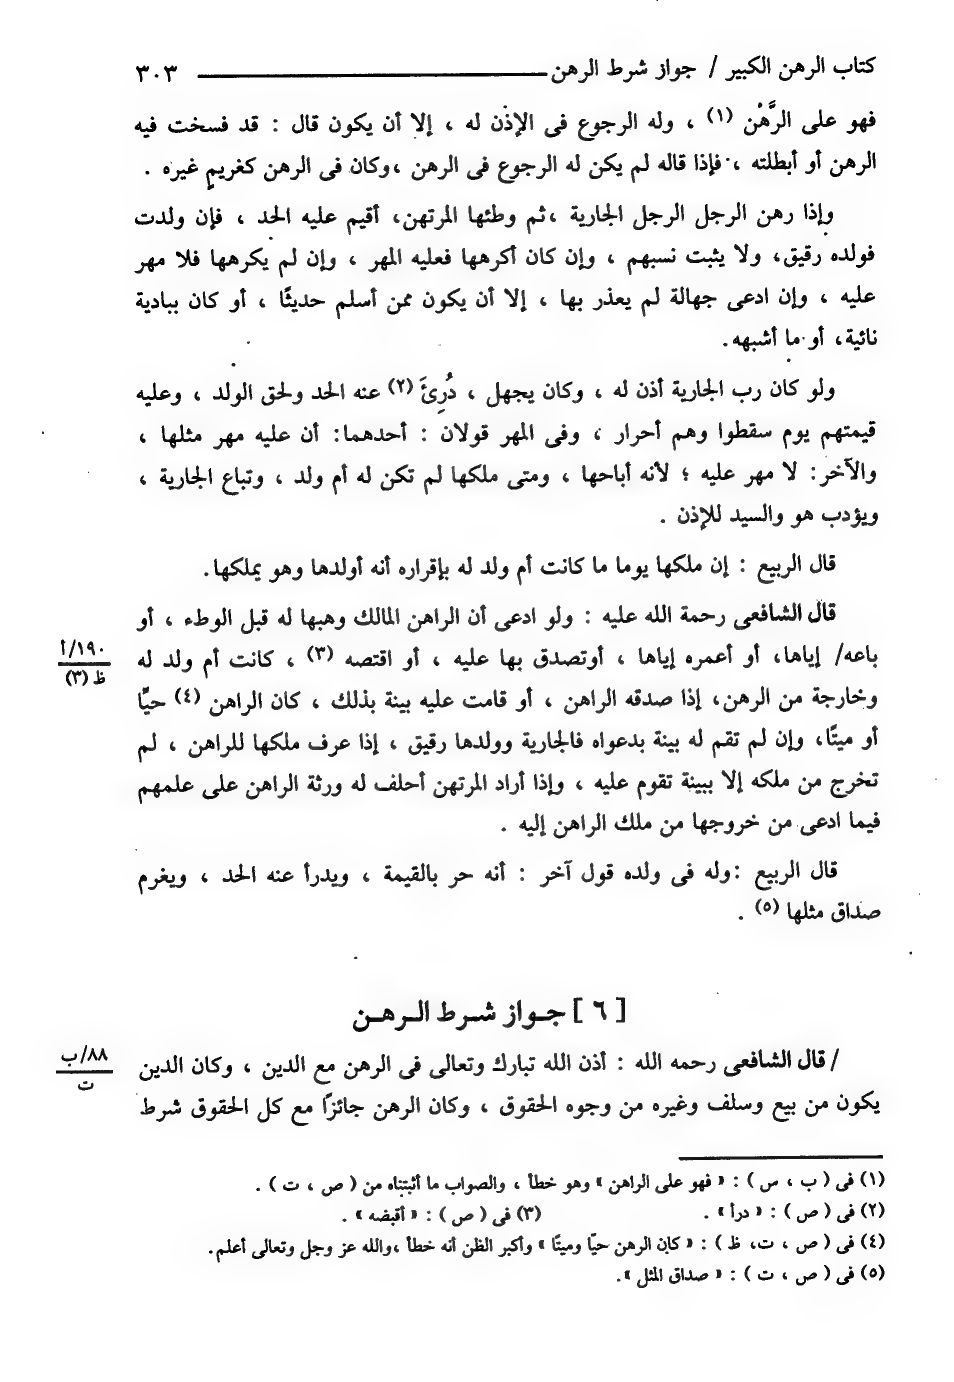 كتاب الرهن الكبير / جواز شرط الرهن ٣٠٣
فهو على الرَّهْن (١) ، وله الرجوع فى الإذن له ، إلا أن يكون قال : قد فسخت فيه
الرهن أو أبطلته ، فإذا قاله لم يكن له الرجوع فى الرهن ،وكان فى الرهن كغريمٍ غيره .
وإذا رهن الرجل الرجل الجارية ،ثم وطئها المرتهن، أقيم عليه الحد ، فإن ولدت
فولده رقيق، ولا يثبت نسبهم ، وإن كان أكرهها فعليه المهر ، وإن لم يكرهها فلا مهر
عليه ، وإن ادعى جهالة لم يعذر بها ، إلا أن يكون ممن أسلم حديثًا ، أو كان ببادية
نائية، أو ما أشبهه.
ولو كان رب الجارية أذن له ، وكان يجهل ، دُرِئَ (٢) عنه الحد ولحق الولد ، وعليه
قيمتهم يوم سقطوا وهم أحرار ، وفى المهر قولان : أحدهما: أن عليه مهر مثلها ،
والآخر: لا مهر عليه ؛ لأنه أباحها ، ومتى ملكها لم تكن له أم ولد ، وتباع الجارية ،
ويؤدب هو والسيد للإذن .
قال الربيع : إن ملكها يوما ما كانت أم ولد له بإقراره أنه أولدها وهو يملكها.
قال الشافعى رحمة الله عليه : ولو ادعى أن الراهن المالك وهبها له قبل الوطء ، أو
باعه/ إياها، أو أعمره إياها ، أوتصدق بها عليه ، أو اقتصه (٣) ، كانت أم ولد له
١٩٠/أ
ظ (٣)
وخارجة من الرهن، إذا صدقه الراهن ، أو قامت عليه بينة بذلك ، كان الراهن (٤) حيًّا
أو ميتًا، وإن لم تقم له بينة بدعواه فالجارية وولدها رقيق ، إذا عرف ملكها للراهن ، لم
تخرج من ملكه إلا ببينة تقوم عليه ، وإذا أراد المرتهن أحلف له ورثة الراهن على علمهم
فيما ادعى من خروجها من ملك الراهن إليه .
قال الربيع :وله فى ولده قول آخر : أنه حر بالقيمة ، ويدرأ عنه الحد ، ويغرم
صداق مثلها (٥) .
[ ٦ ] جـواز شـرط الـرهـن
/ قال الشافعى رحمه الله : أذن الله تبارك وتعالى فى الرهن مع الدين ، وكان الدين
٨٨/ب
ت
يكون من بيع وسلف وغيره من وجوه الحقوق ، وكان الرهن جائزًا مع كل الحقوق شرط
(١) فى ( ب ، س ) : « فهو على الراهن » وهو خطأ ، والصواب ما أثبتناه من ( ص ، ت ) .
(٢) فى ( ص ) : « درأ » . (٣) فى ( ص ) : « أقبضه » .
(٤) فى ( ص ، ت، ظ ) : « كان الرهن حيًا وميتًا » وأكبر الظن أنه خطأ ،والله عز وجل وتعالى أعلم.
(٥) فى ( ص ، ت ) : « صداق المثل ».